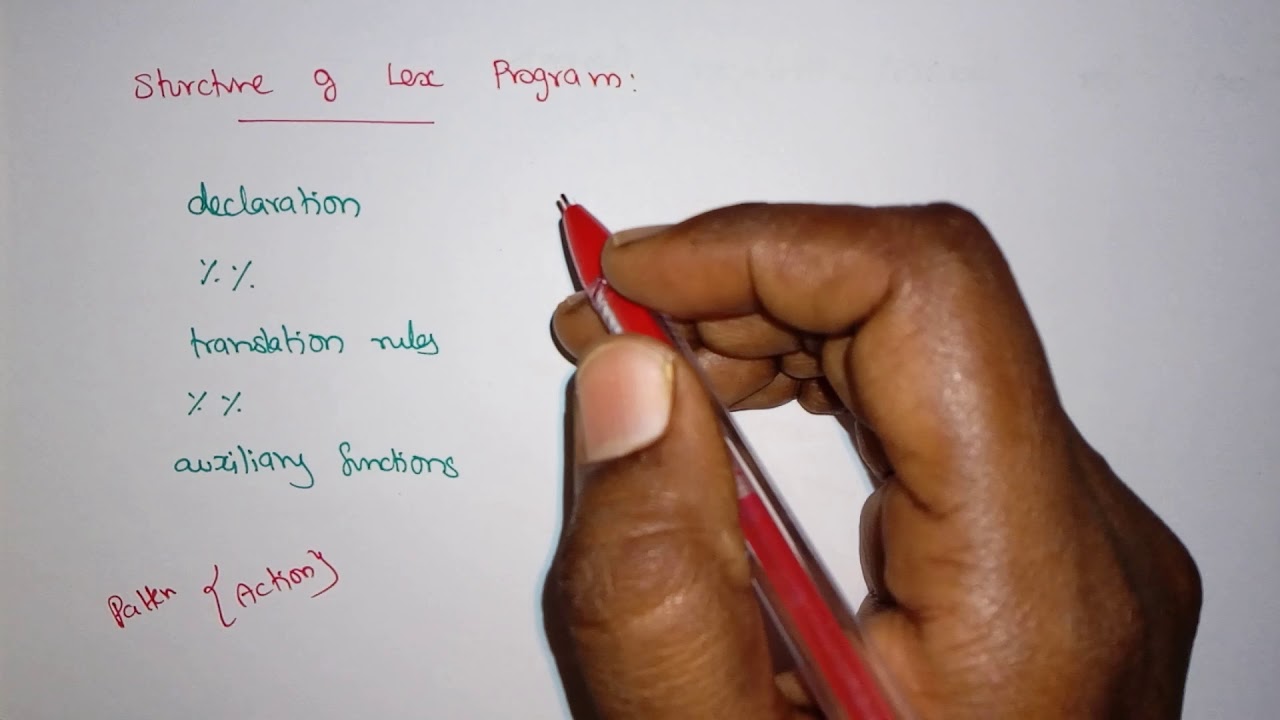 Sturcture of Lex Program:
declaration
%%
translation rules
%%
auxiliary functions
Pattern {Action}